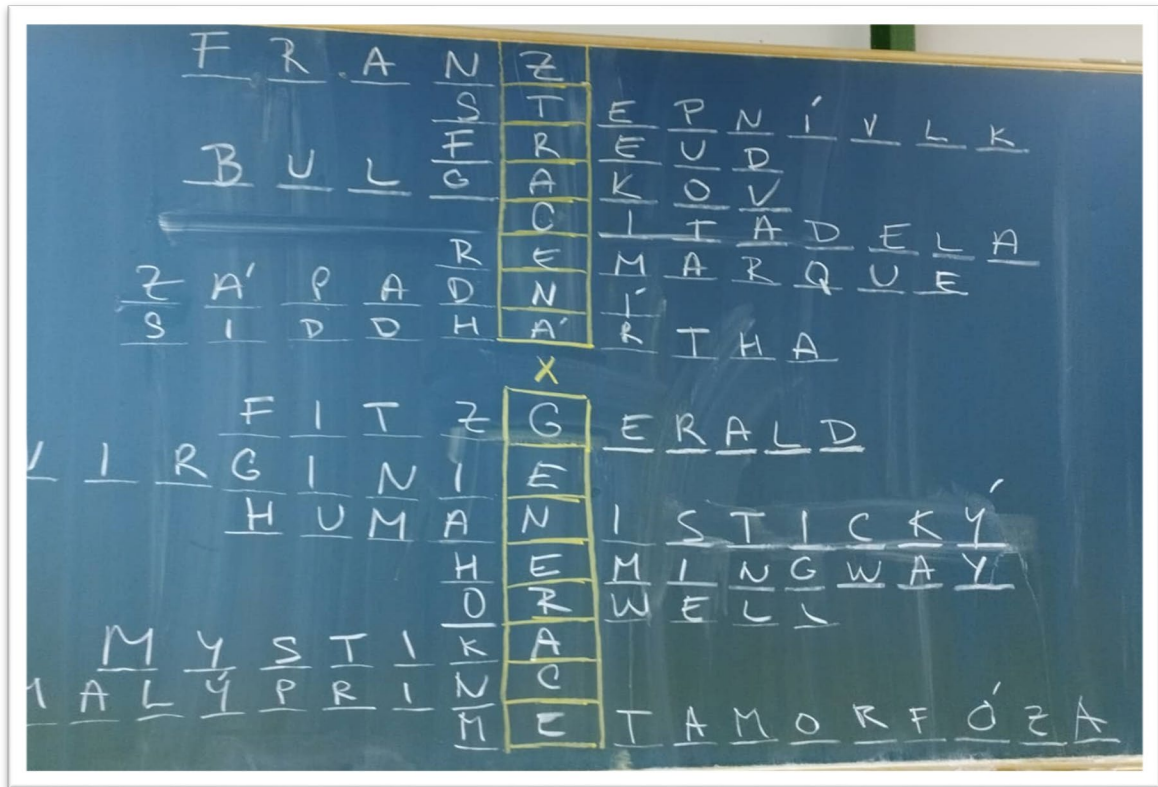 F R A N Z
S T E P N Í V L K
F R E U D
B U L G A K O V
C I T A D E L A
R E M A R Q U E
Z Á P A D N Í
S I D D H Á R T H A
X
F I T Z G E R A L D
V I R G I N I E
H U M A N I S T I C K Ý
H E M I N G W A Y
O R W E L L
M Y S T I K A
M A L Ý P R I N C
M E T A M O R F Ó Z A